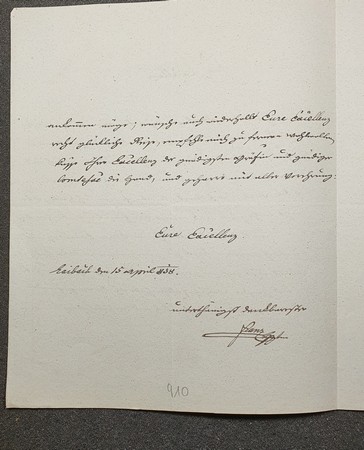 ankommen möge; wünsche auch indeßelbst Eure Excellenz
recht glückliche Reise, empfehle mich zu fernern Wohlwollen
küsse Ihrer Excellenz der gnädigsten Gräfin und gnädiger
Comtesse die Hand, und geharre mit aller Verehrung:
Eure Excellenz
Laibach den 15 April 838.
unterthänigst dankbarster
Franz
910